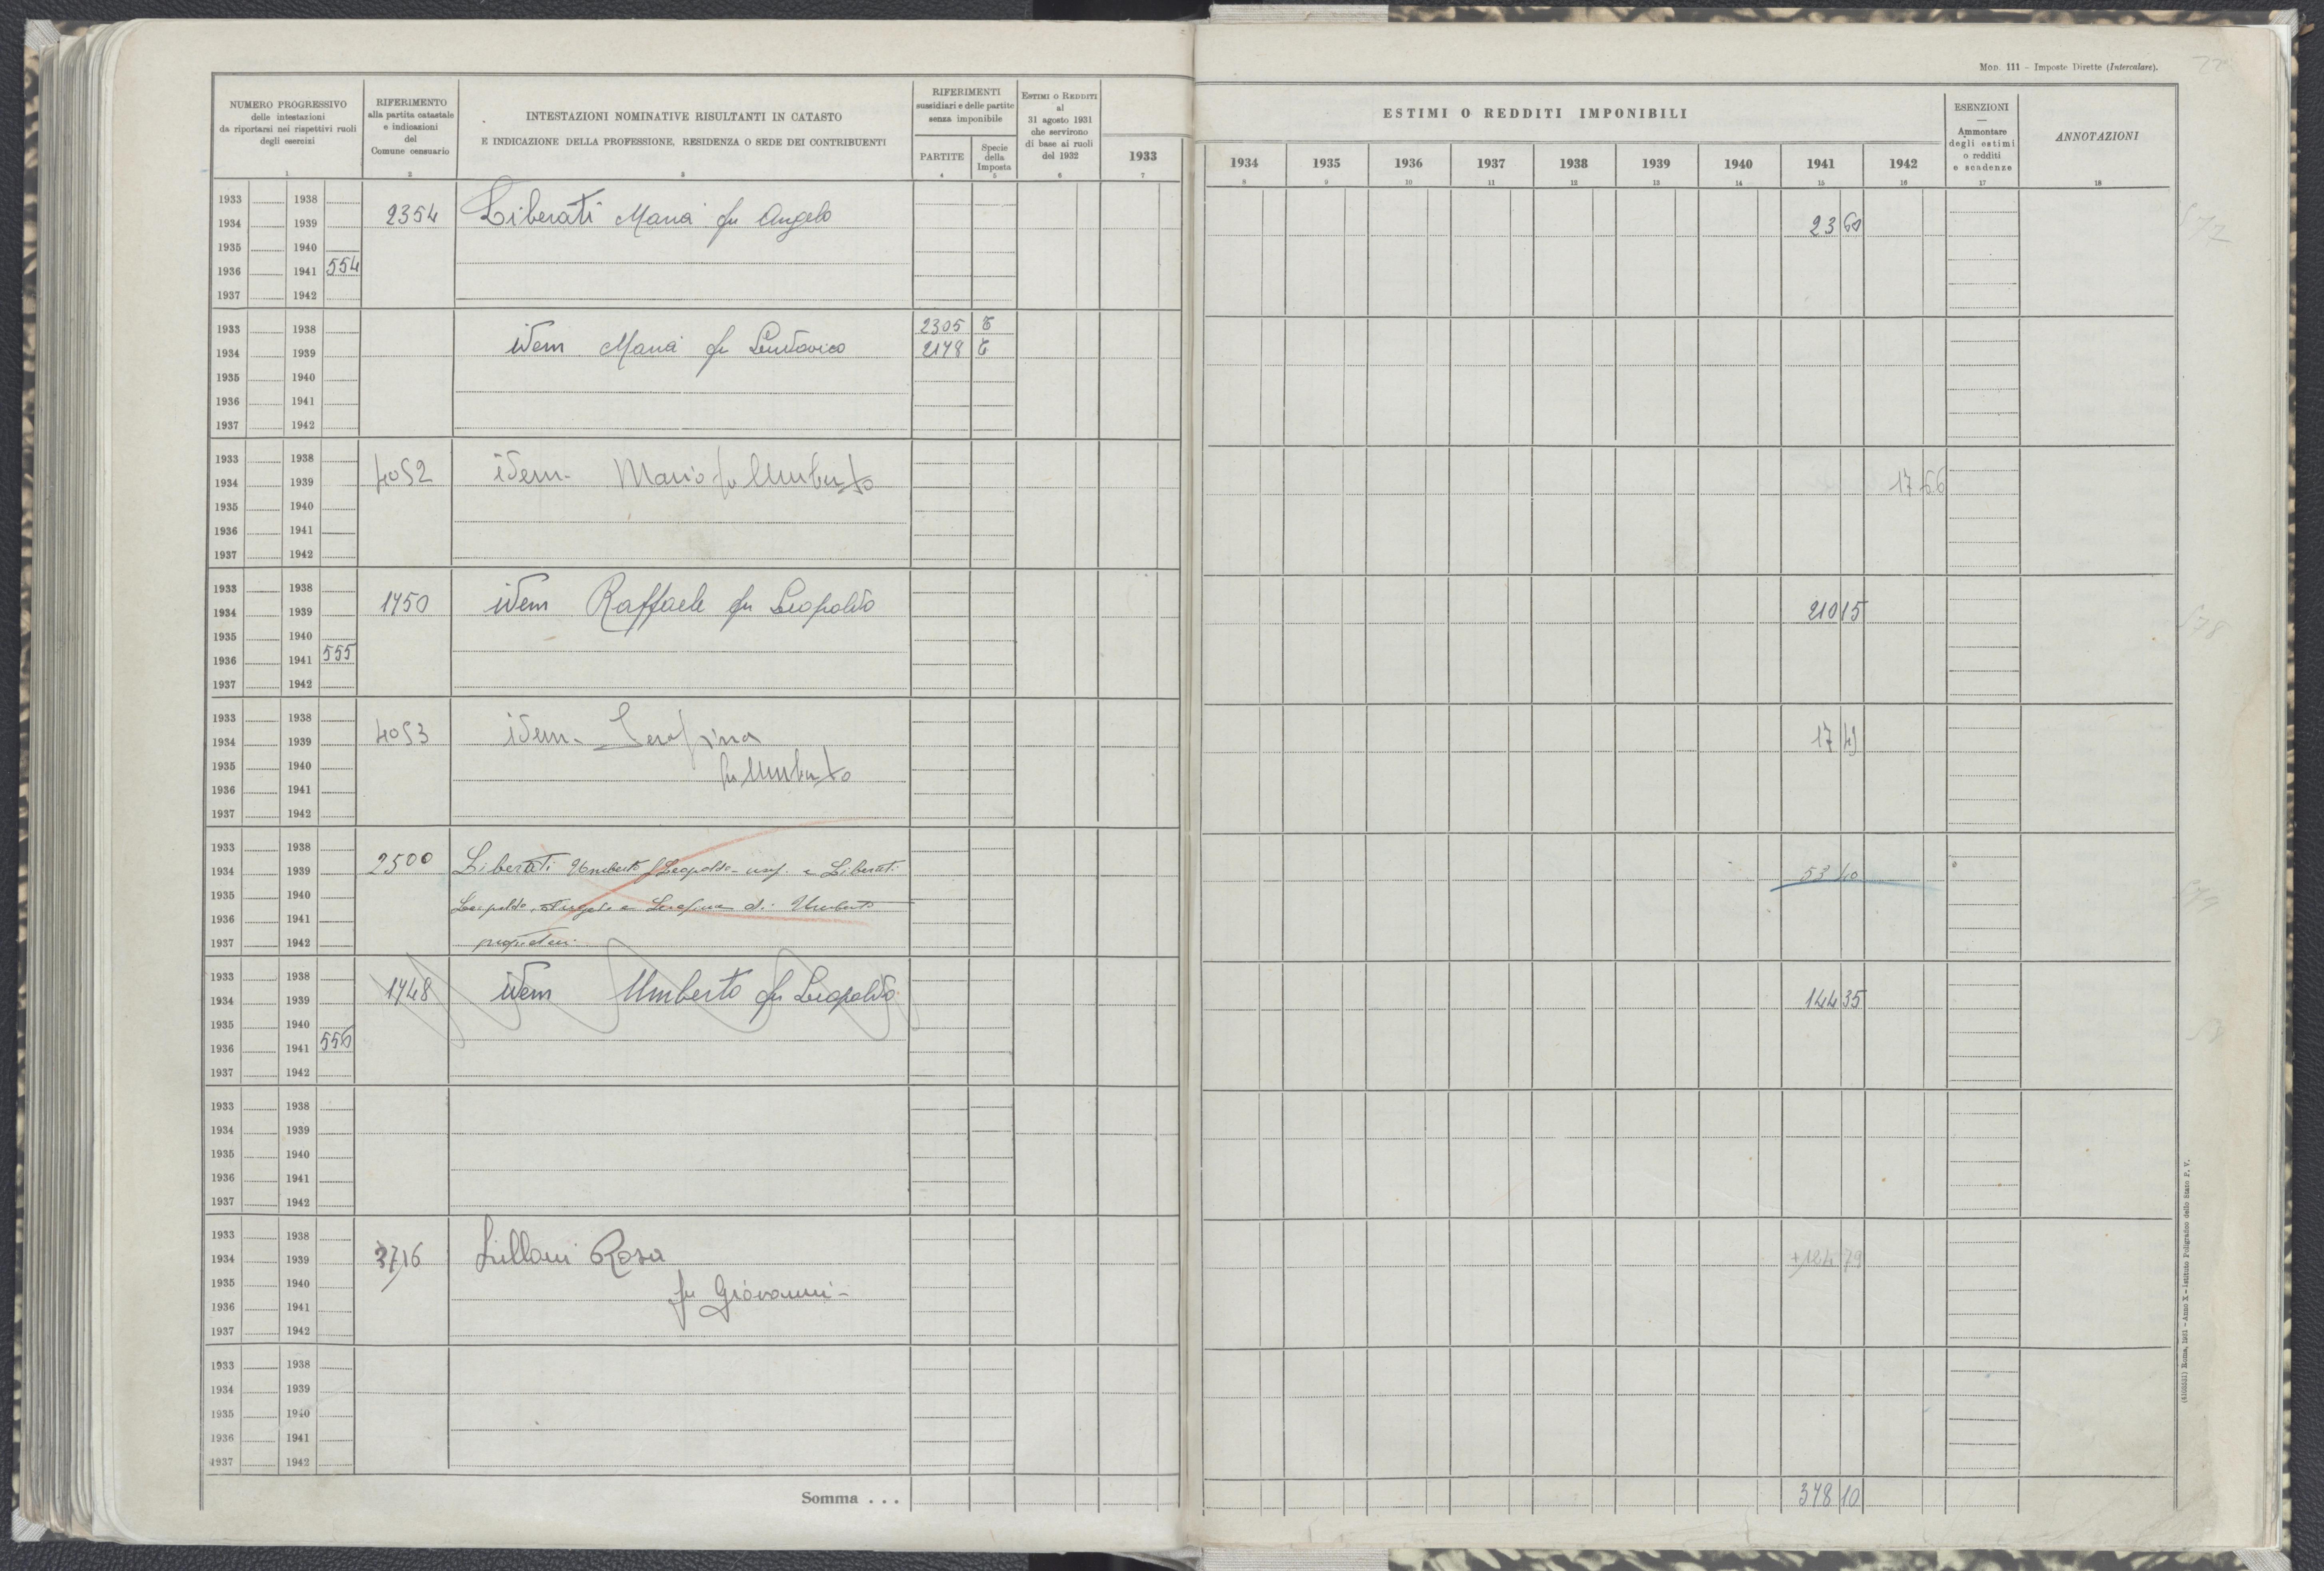 Mod. 111 - Imposte Dirette (Intercalare).
NUMERO PROGRESSIVO
delle intestazioni
da riportarsi nei rispettivi ruoli
degli esercizi
1
RIFERIMENTO
alla partita catastale
e indicazioni
del
Comune censuario
2
INTESTAZIONI NOMINATIVE RISULTANTI IN CATASTO
E INDICAZIONE DELLA PROFESSIONE, RESIDENZA O SEDE DEI CONTRIBUENTI
3
RIFERIMENTI
sussidiari e delle partite
senza imponibile
PARTITE
4
Specie
della
Imposta
5
Estimi o Redditi
al
31 agosto 1931
che servirono
di base ai ruoli
del 1932
6
ESTIMI O REDDITI IMPONIBILI
1933 1934 1935 1936 1937 1938 1939 1940 1941 1942
7 8 9 10 11 12 13 14 15 16
ESENZIONI
—
Ammontare
degli estimi
o redditi
e scadenze
17
ANNOTAZIONI
18
1933 1938
1934 1939 2354 Liberati Maria fu Angelo 23 60
1935 1940
1936 1941 554
1937 1942
1933 1938 2305 T
1934 1939 idem Maria fu Ludovico 2178 T
1935 1940
1936 1941
1937 1942
1933 1938
1934 1939 4052 idem - Mario fu Umberto 17 66
1935 1940
1936 1941
1937 1942
1933 1938
1934 1939 1750 idem Raffaele fu Leopoldo 210 15
1935 1940
1936 1941 555
1937 1942
1933 1938
1934 1939 4053 idem - Serafina 17
1935 1940 fu Umberto
1936 1941
1937 1942
1933 1938
1934 1939 2500 Liberati Umberto f Leopoldo - usuf. e Liberati
1935 1940 53 40
1936 1941 Leopoldo, e Serafina di Umberto
1937 1942 proprietari
1933 1938
1934 1939 1748 idem Umberto fu Leopoldo 144 35
1935 1940
1936 1941 556
1937 1942
1933 1938
1934 1939
1935 1940
1936 1941
1937 1942
1933 1938
1934 1939 3716 Lillani Rosa +124 79
1935 1940
1936 1941 fu Giovanni -
1937 1942
1933 1938
1934 1939
1935 1940
1936 1941
1937 1942
Somma . . . 378 10
(4103531) Roma, 1931 - Anno X - Istituto Poligrafico dello Stato P. V.